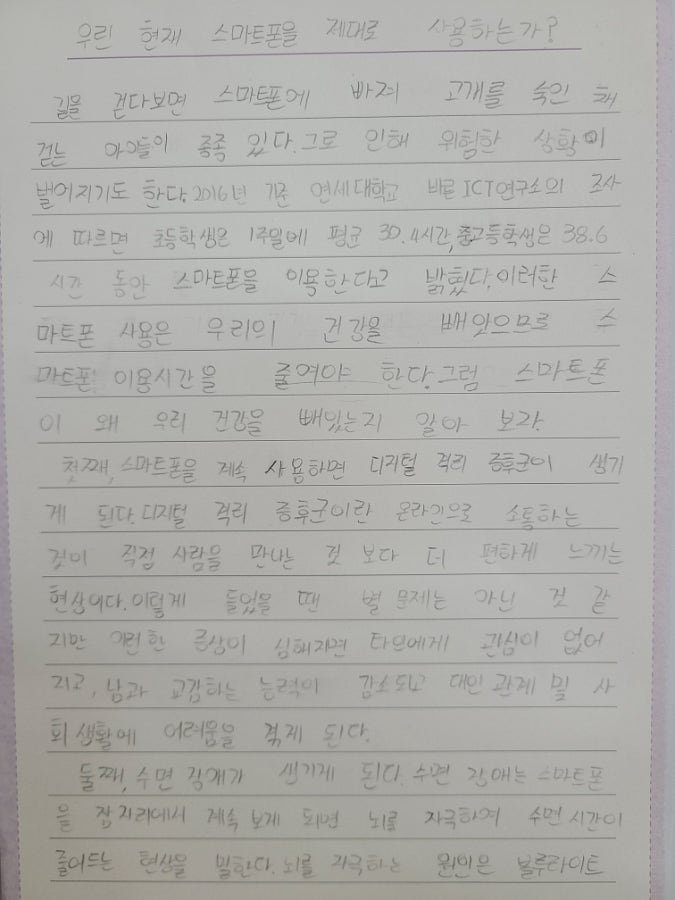 우린 현재 스마트폰을 제대로 사용하는가?
길을 걷다보면 스마트폰에 빠져 고개를 숙인 채
걷는 아이들이 종종 있다.그로 인해 위험한 상황이
벌어지기도 한다.2016년 기준 연세대학교 바른ICT연구소의 조사
에 따르면 초등학생은 1주일에 평균 30.4시간,중고등학생은 38.6
시간 동안 스마트폰을 이용한다고 밝혔다.이러한 스
마트폰 사용은 우리의 건강을 빼앗으므로 스
마트폰 이용시간을 줄여야 한다.그럼 스마트폰
이 왜 우리 건강을 빼있는지 알아 보자.
첫째,스마트폰을 계속 사용하면 디지털 격리 증후군이 생기
게 된다.디지털 격리 증후군이란 온라인으로 소통하는
것이 직접 사람을 만나는 것 보다 더 편하게 느끼는
현상이다.이렇게 들었을 땐 별 문제는 아닌 것 같
지만 이러한 증상이 심해지면 타인에게 관심이 없어
지고, 남과 교감하는 능력이 감소되고 대인 관계 및 사
회 생활에 어려움을 겪게 된다.
둘째,수면 장애가 생기게 된다.수면 장애는 스마트폰
을 잠자리에서 계속 보게 되면 뇌를 자극하여 수면 시간이
줄어드는 현상을 말한다.뇌를 자극하는 원인은 블루라이트